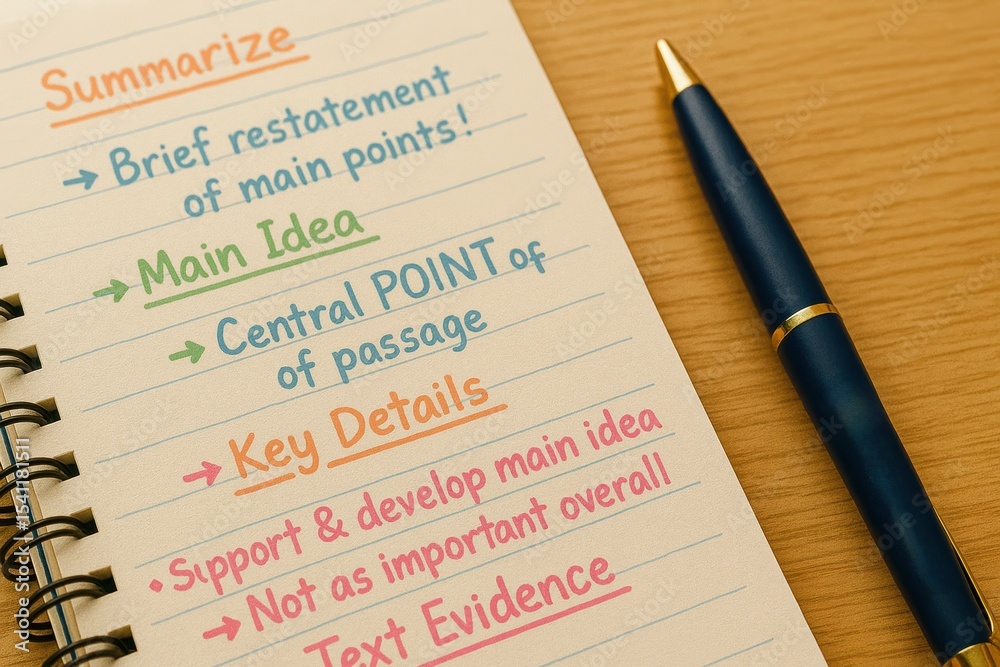 Summarize
→ Brief restatement
of main points!
Main Idea
→ Central POINT of
of passage
→ Key Details
• Support & develop main idea
→ Not as important overall
Text Evidence
Adobe Stock | #1541181511